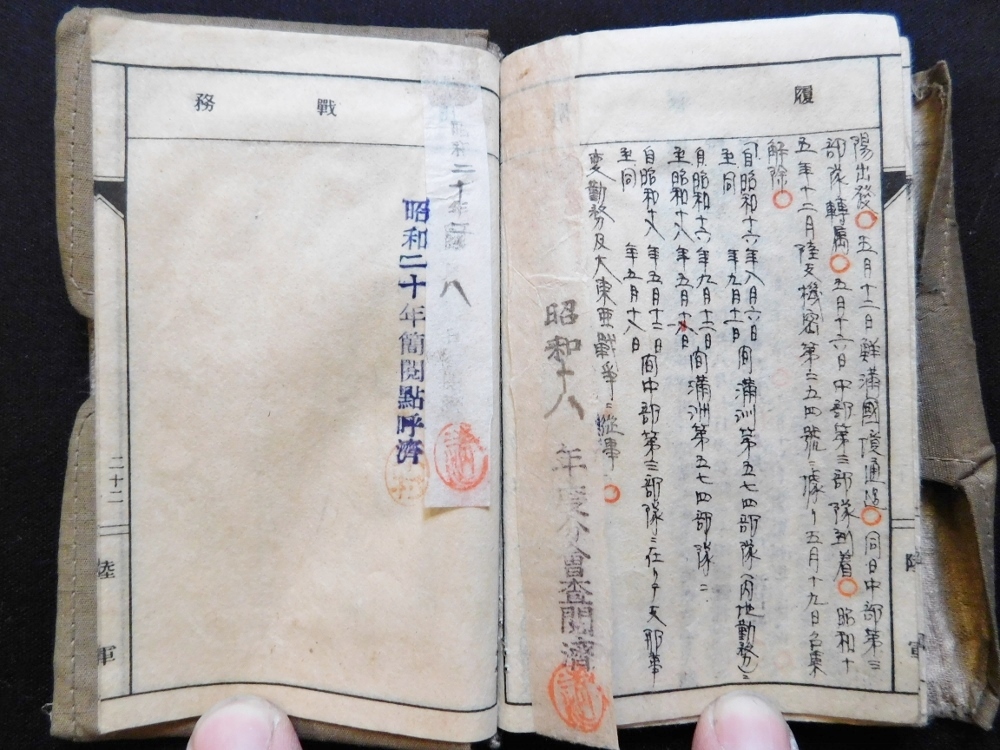 履
陽出發〇五月十二日鮮滿國境通過〇同日中部第三
部隊轉屬〇五月十六日中部第三部隊到着〇昭和十
五年十二月陸支機密第二五四號ニ據リ五月十九日召集
解除〇
自昭和十六年八月六日
至同 年九月十一日
間滿洲第五七四部隊(内地勤務)ニ
自昭和十六年九月十二日
至昭和十八年五月十一日
間滿洲第五七四部隊ニ
自昭和十八年五月十二日
至同 年五月十八日
間中部第三部隊ニ在リテ支那事
變勤務及大東亜戰爭ニ從事〇
昭和十八年度分會査閲濟
戰務
昭和二十年
八
昭和二十年簡閲點呼濟
二十二
陸軍
陸軍